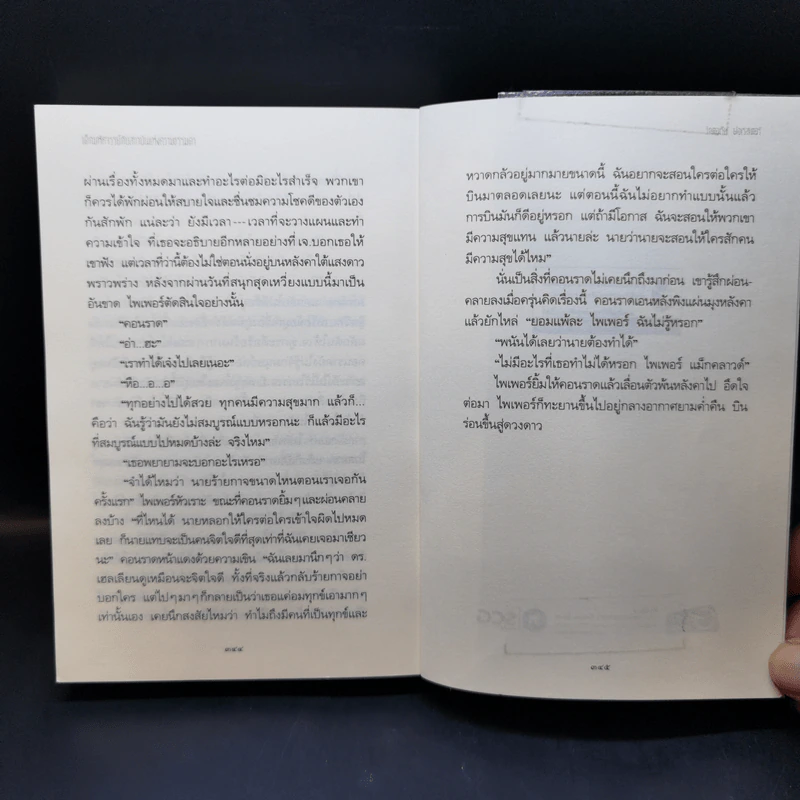 ผ่านเรื่องทั้งหมดมาและทำอะไรต่อมิอะไรสำเร็จ พวกเขา
ก็ควรได้พักผ่อนให้สบายใจและชื่นชมความโชคดีของตัวเอง
กันสักพัก แน่ละว่า ยังมีเวลา---เวลาที่จะวางแผนและทำ
ความเข้าใจ ที่เธอจะอธิบายอีกหลายอย่างที่ เจ.บอกเธอให้
เขาฟัง แต่เวลาที่ว่านี้ต้องไม่ใช่ตอนนั่งอยู่บนหลังคาใต้แสงดาว
พราวพร่าง หลังจากผ่านวันที่สนุกสุดเหวี่ยงแบบนี้มาเป็น
อันขาด ไพเพอร์ตัดสินใจอย่างนั้น
“คอนราด”
“อ่า...ฮะ”
“เราทำได้เจ๋งไปเลยเนอะ”
“หือ...อ...อ”
“ทุกอย่างไปได้สวย ทุกคนมีความสุขมาก แล้วก็...
คือว่า ฉันรู้ว่ามันยังไม่สมบูรณ์แบบหรอกนะ ก็แล้วมีอะไร
ที่สมบูรณ์แบบไปหมดบ้างล่ะ จริงไหม”
“เธอพยายามจะบอกอะไรเหรอ”
“จำได้ไหมว่า นายร้ายกาจขนาดไหนตอนเราเจอกัน
ครั้งแรก” ไพเพอร์หัวเราะ ขณะที่คอนราดยิ้มๆและผ่อนคลาย
ลงบ้าง “ที่ไหนได้ นายหลอกให้ใครต่อใครเข้าใจผิดไปหมด
เลย ก็นายแทบจะเป็นคนจิตใจดีที่สุดเท่าที่ฉันเคยเจอมาเชียว
นะ” คอนราดหน้าแดงด้วยความเขิน “ฉันเลยมานึกๆว่า ดร.
เฮลเลียนดูเหมือนจะจิตใจดี ทั้งที่จริงแล้วกลับร้ายกาจอย่า
บอกใคร แต่ไปๆมาๆก็กลายเป็นว่าเธอแค่อมทุกข์เอามากๆ
เท่านั้นเอง เคยนึกสงสัยไหมว่า ทำไมถึงมีคนที่เป็นทุกข์และ
๓๔๔
หวาดกลัวอยู่มากมายขนาดนี้ ฉันอยากจะสอนใครต่อใครให้
บินมาตลอดเลยนะ แต่ตอนนี้ฉันไม่อยากทำแบบนั้นแล้ว
การบินมันก็ดีอยู่หรอก แต่ถ้ามีโอกาส ฉันจะสอนให้พวกเขา
มีความสุขแทน แล้วนายล่ะ นายว่านายจะสอนให้ใครสักคน
มีความสุขได้ไหม”
นั่นเป็นสิ่งที่คอนราดไม่เคยนึกถึงมาก่อน เขารู้สึกผ่อน-
คลายลงเมื่อครุ่นคิดเรื่องนี้ คอนราดเอนหลังพิงแผ่นมุงหลังคา
แล้วยักไหล่ “ยอมแพ้ละ ไพเพอร์ ฉันไม่รู้หรอก”
“พนันได้เลยว่านายต้องทำได้”
“ไม่มีอะไรที่เธอทำไม่ได้หรอก ไพเพอร์ แม็กคลาวด์”
ไพเพอร์ยิ้มให้คอนราดแล้วเลื่อนตัวพ้นหลังคาไป อึดใจ
ต่อมา ไพเพอร์ก็ทะยานขึ้นไปอยู่กลางอากาศยามค่ำคืน บิน
ร่อนขึ้นสู่ดวงดาว
๓๔๕